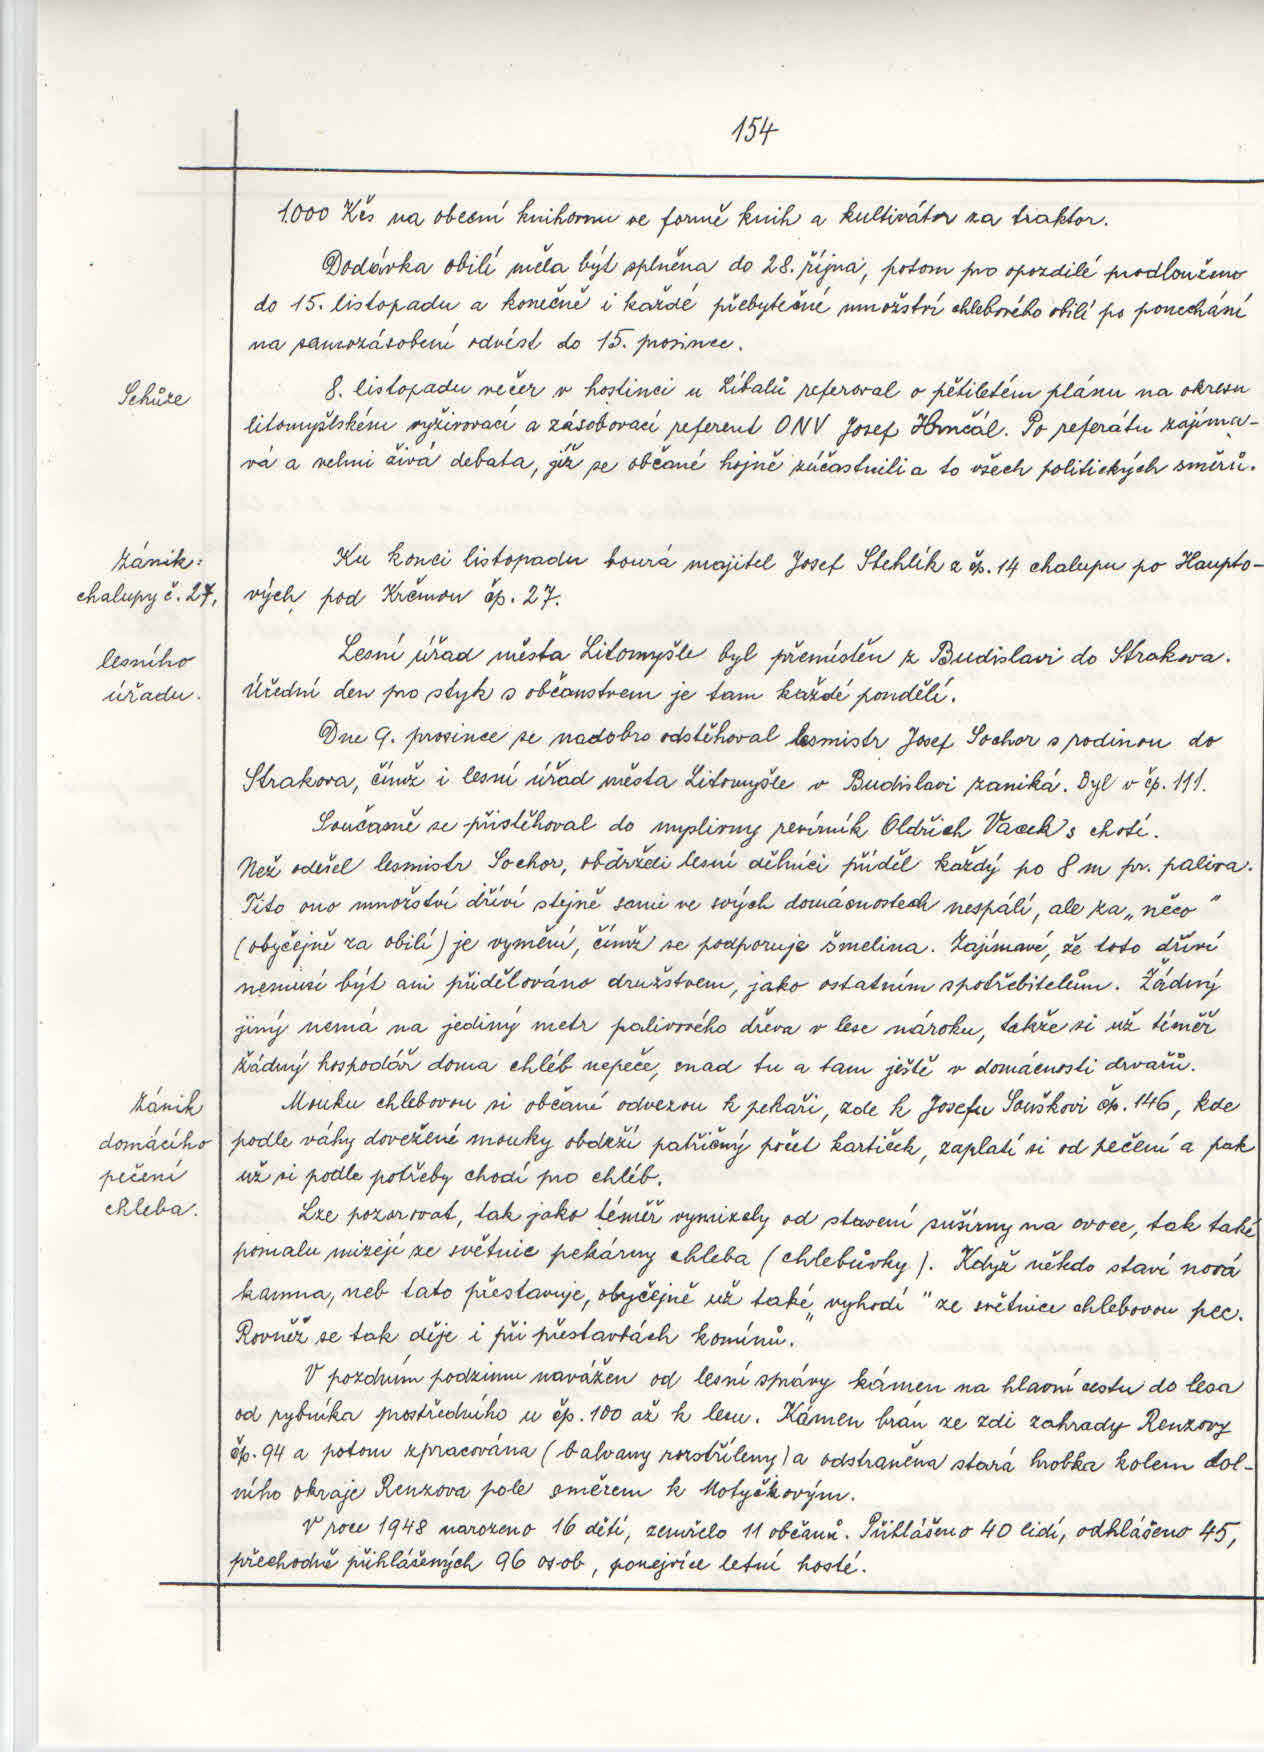 154
1000 Kčs na obecní knihovnu ve formě knih a kultivátor za traktor.
Dodávka obilí měla být splněna do 28. října, potom pro opozdilé prodlouženo
do 15. listopadu a konečně i každé přebytečné množství chlebového obilí po ponechání
na samozásobení odvést do 15. prosince.
Schůze
8. listopadu večer v hostinci u Líbalů referoval o pětiletém plánu na okresu
litomyšlském vyživovací a zásobovací referent ONV Josef Hrnčál. Po referátu zajíma-
vá a velmi živá debata, jíž se občané hojně zúčastnili a to všech politických směrů.
Zánik:
chalupy č. 27,
Ku konci listopadu bourá majitel Josef Stehlík z čp. 14 chalupu po Haupto-
vých, pod Krčmou čp. 27.
lesního
úřadu.
Lesní úřad města Litomyšle byl přemístěn z Budislavi do Strakova.
Úřední den pro styk s občanstvem je tam každé pondělí.
Dne 9. prosince se nadobro odstěhoval lesmistr Josef Sochor s rodinou do
Strakova, čímž i lesní úřad města Litomyšle v Budislavi zaniká. Byl v čp. 111.
Současně se přistěhoval do myslivny revírník Oldřich Vacek s chotí.
Než odešel lesmistr Sochor, obdrželi lesní dělníci příděl každý po 8 m pr. paliva.
Tito ono množství dříví stejně sami ve svých domácnostech nespálí, ale za „něco"
(obyčejně za obilí) je vymění, čímž se podporuje šmelina. Zajímavé, že toto dříví
nemusí být ani přidělováno družstvem, jako ostatním spotřebitelům. Žádný
jiný nemá na jediný metr palivového dřeva v lese nároku, takže si už téměř
žádný hospodář doma chléb nepeče, snad tu a tam ještě v domácnosti drvařů.
Zánik
domácího
pečení
chleba.
Mouku chlebovou si občané odvezou k pekaři, zde k Josefu Souškovi čp. 146, kde
podle váhy dovežené mouky obdrží patřičný počet kartiček, zaplatí si od pečení a pak
už si podle potřeby chodí pro chléb.
Lze pozorovat, tak jako téměř vymizely od stavení sušírny na ovoce, tak také
pomalu mizejí ze světnic pekárny chleba (chlebůvky). Když někdo staví nová
kamna, neb tato přestavuje, obyčejně už také „vyhodí" ze světnice chlebovou pec.
Rovněž se tak děje i při přestavbách komínů.
V pozdním podzimu navážen od lesní správy kámen na hlavní cestu do lesa
od rybníka prostředního u čp. 100 až k lesu. Kámen brán ze zdi zahrady Renzovy
čp. 94 a potom zpracována (balvany rozstříleny) a odstraněna stará hrobka kolem dol-
ního okraje Renzova pole směrem k Motyčkovým.
V roce 1948 narozeno 16 dětí, zemřelo 11 občanů. Přihlášeno 40 lidí, odhlášeno 45,
přechodně přihlášených 96 osob, ponejvíce letní hosté.